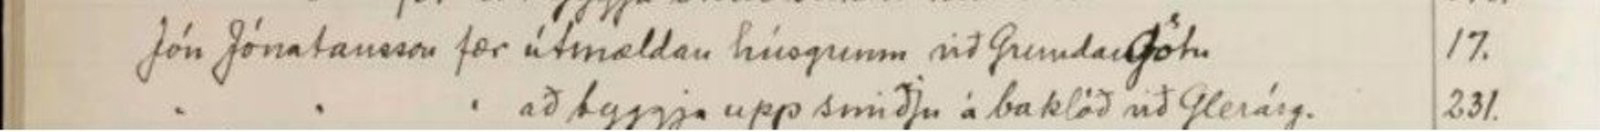 Jón Jónatansson fær útmældan húsgrunn við Grundargötu 17.
" " " að byggja upp smiðju á baklóð við Glerárg. 231.